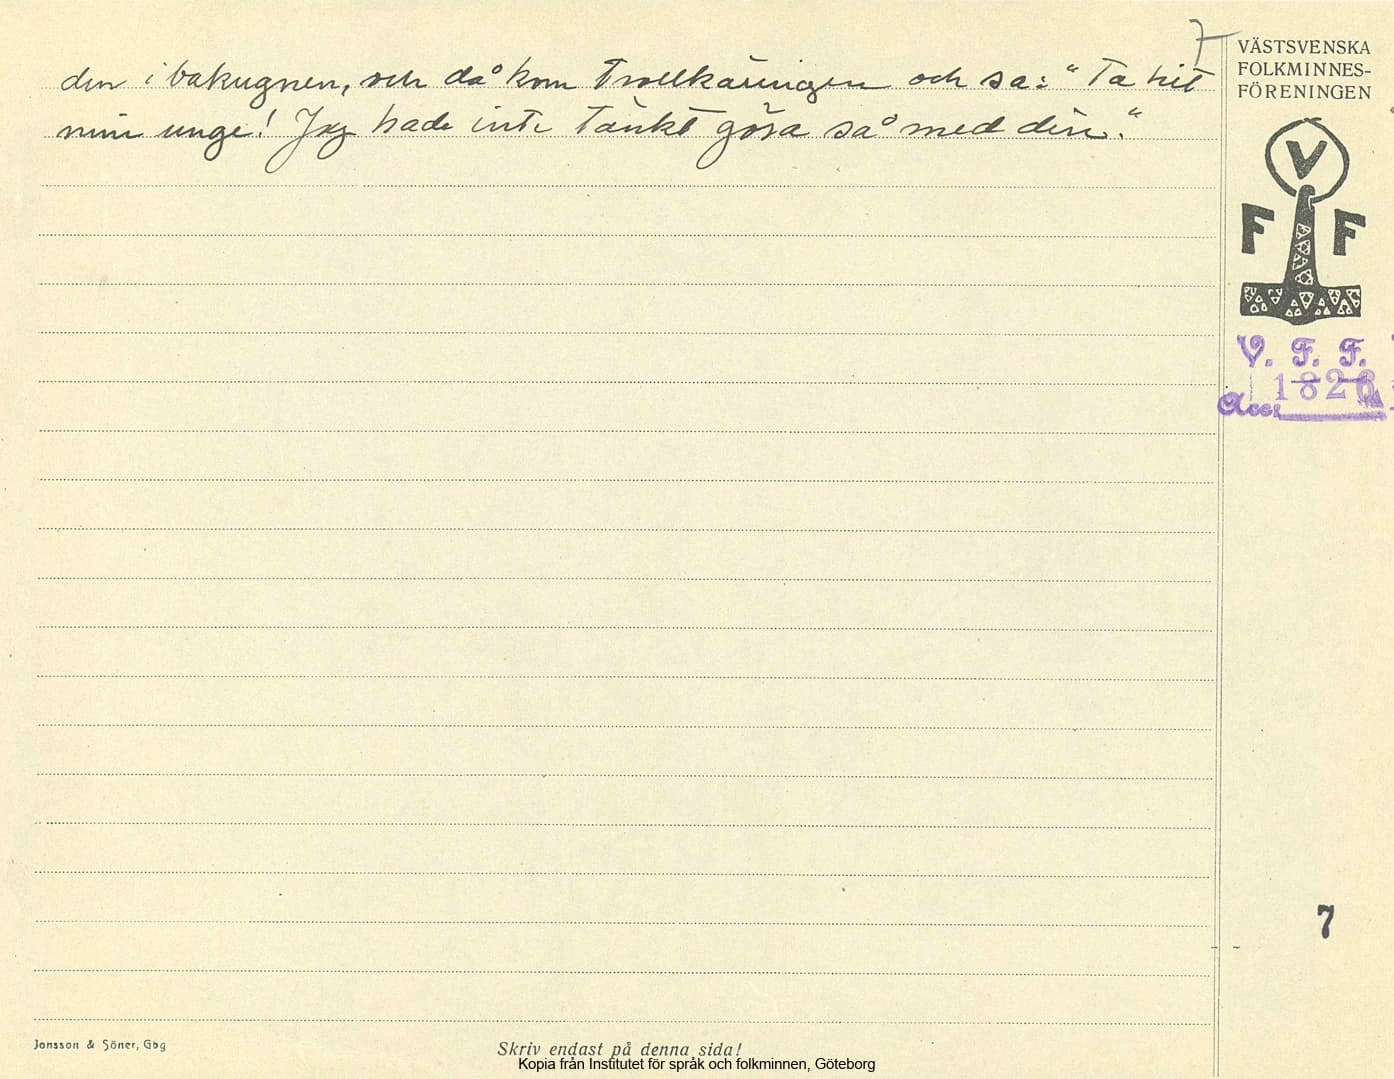 7
den i bakugnen, och då kom Trollkäringen och sa: "Ta hit
min unge! Jag hade inte tänkt göra så med din."
VÄSTSVENSKA
FOLKMINNES-
FÖRENINGEN
V
F F
V. F. F.
1826
Acc:
7
Jonsson & Söner, Gbg
Skriv endast på denna sida!
Kopia från Institutet för språk och folkminnen, Göteborg